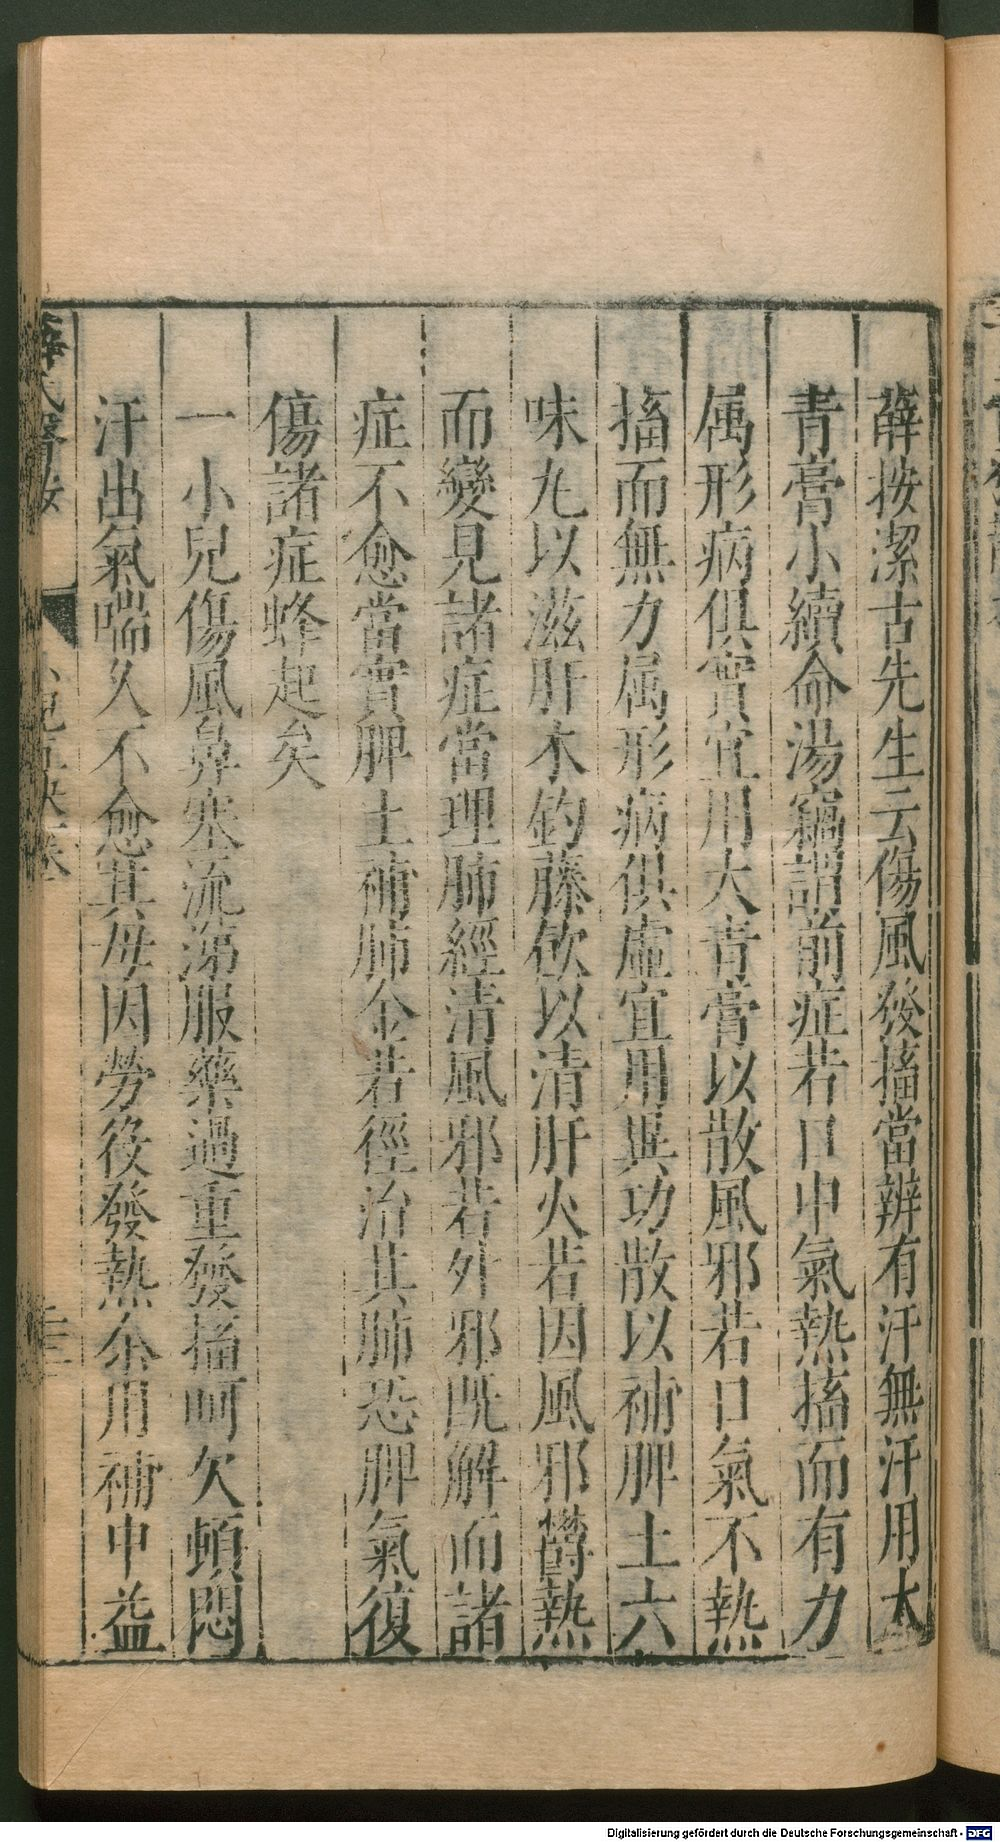 薛按潔古先生云傷風發搐當辨有汗無汗用大
青膏小續命湯竊謂前症若口中氣熱搐而有力
属形病俱實宜用大青膏以散風邪若口氣不熱
搐而無力属形病俱虛宜用異功散以補脾土六
味丸以滋肝木釣藤飲以清肝火若因風邪欝熱
而變見諸症當理肺經清風邪若外邪既解而諸
症不愈當實脾土補肺金若徑治其肺恐脾氣復
傷諸症蜂起矣
一小兒傷風鼻塞流涕服藥過重發搐呵欠頓悶
汗出氣喘久不愈其母因勞役發熱余用補中益
薛氏醫按
Digitalisierung gefördert durch die Deutsche Forschungsgemeinschaft - DFG